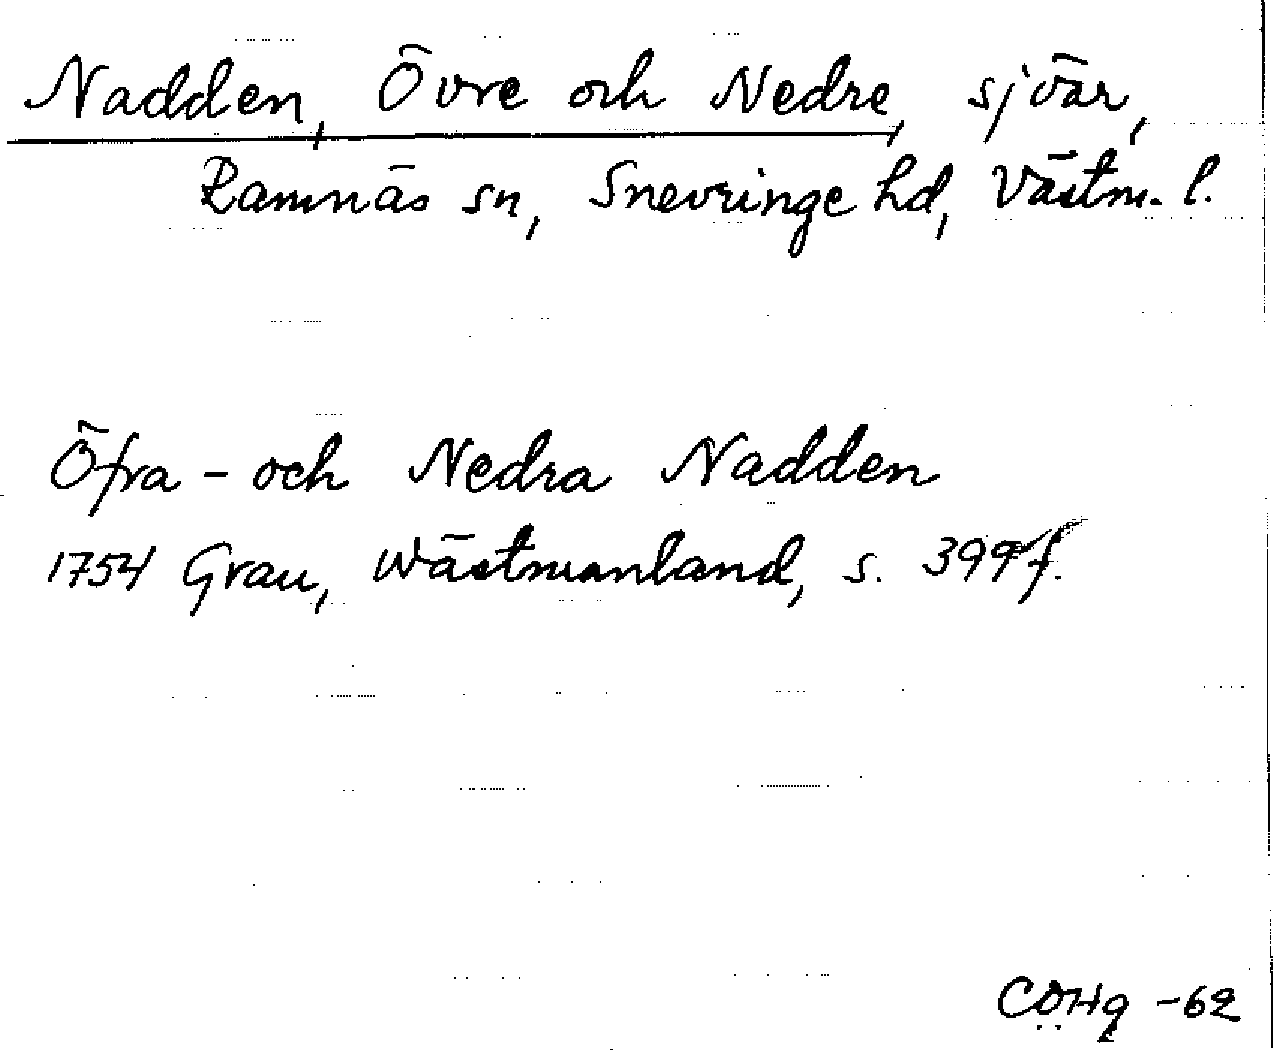 Nadden, Övre och Nedre, sjöar,
Ramnäs sn, Snevringe hd, Västm. l.
Öfra - och Nedra Nadden
1754 Grau, Wästmanland, s. 399 f.
CÖHg -62